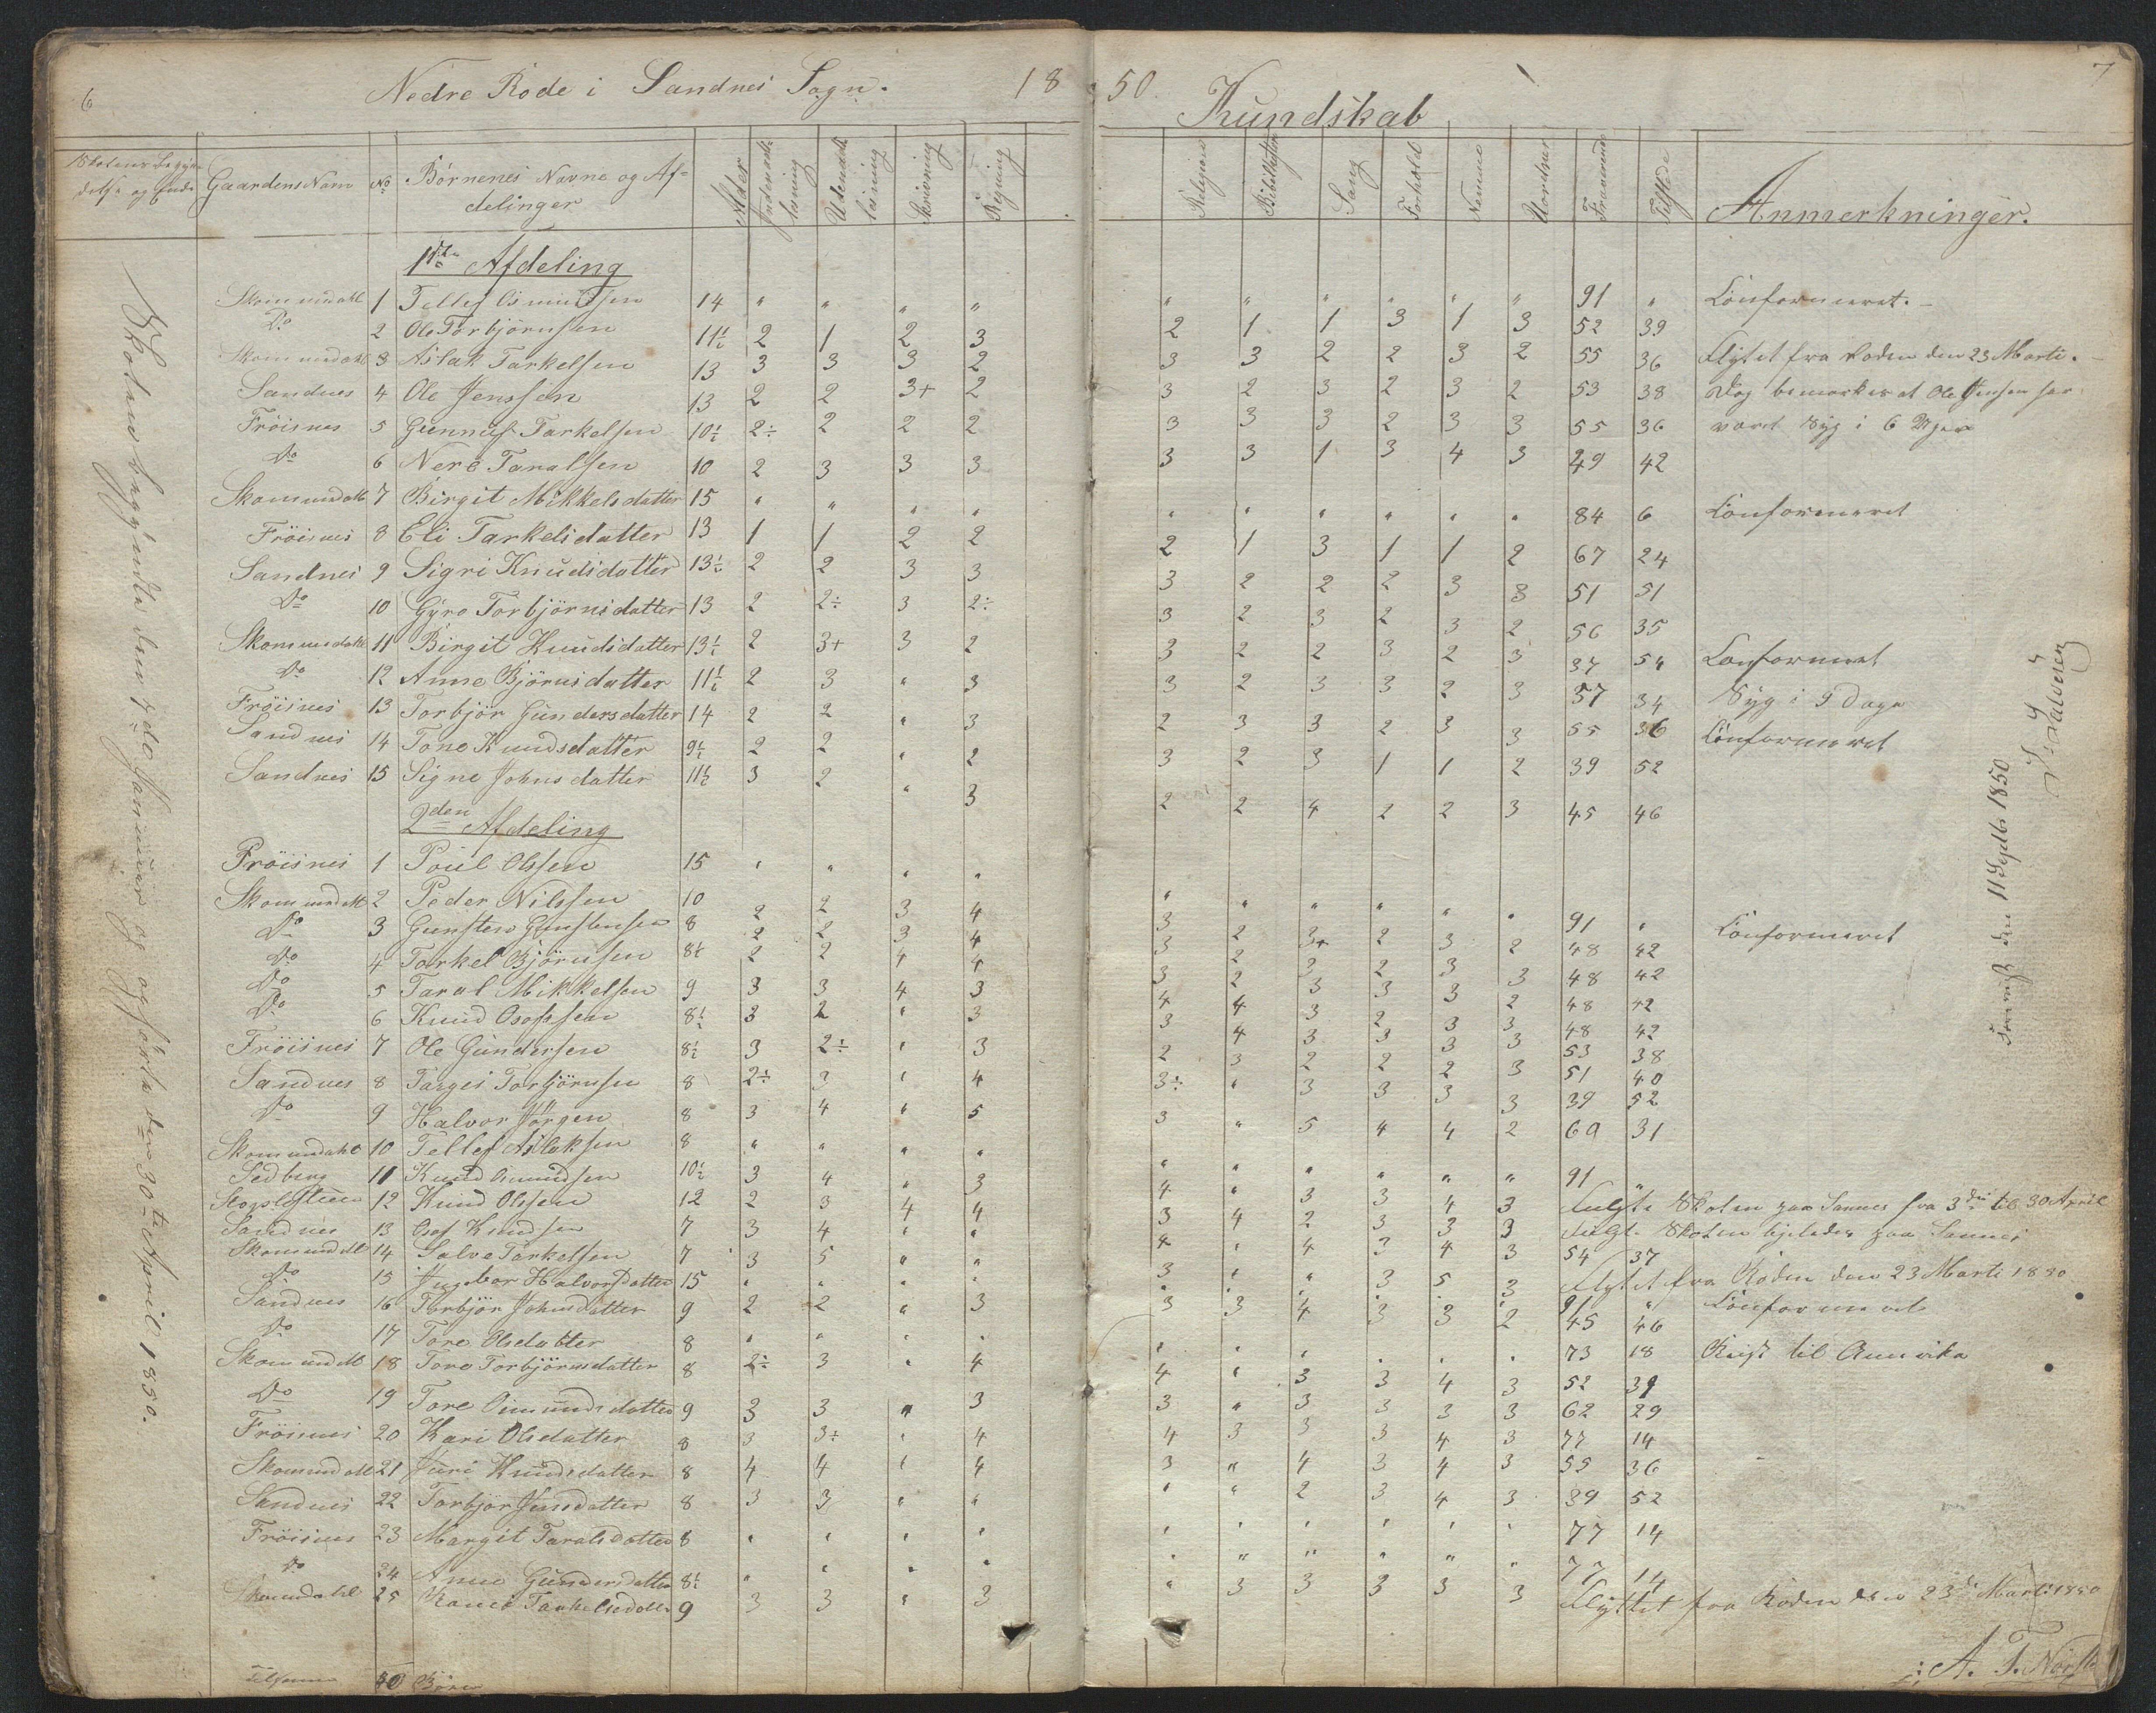 6 Nedre Rode i Sandnes Sogn. 18
50. Kundskab 7
Skolens Begyn-
delse og Ende
Gaardens Navn No Börnenes Navne og Af-
delinger
Alder Indenads læsning Udenads læsning Skrivning Regning
Religion Bibelhistorie Sang Forhold Nemme Fraværende Tilstede Anmerkninger.
Skolen begyndte den 7de Januar og ophörte den 30te April 1850.
1ste Afdeling
Skomundahl 1 Tellef Osmundsen 14 " " " " " " " " " " 91 " Confirmeret.
Do 2 Ole Torbjörnsen 11½ 2 1 2 3 2 1 1 3 1 3 52 39
Skomundahl 3 Aslak Tarkelsen 13 3 3 3 2 3 3 2 2 3 2 55 36 Flytet fra Roden den 23 Marti.
Sandnes 4 Ole Jenssen 13 2 2 3+ 2 3 2 3 2 3 2 53 38 Dog bemerkes at Ole Jensen har
Fröisnes 5 Gunnuf Tarkelsen 10½ 2÷ 2 2 2 3 3 3 2 3 3 55 36 været Syg i 6 Uger
Do 6 Nere Taralsen 10 2 3 3 3 3 3 1 3 4 3 49 42
Skomundahl 7 Birgit Mikkelsdatter 15 " " " " " " " " " " 84 6 Confirmeret
Fröisnes 8 Eli Tarkelsdatter 13 1 1 2 2 2 1 3 1 1 2 67 24
Sandnes 9 Sigri Knudsdatter 13½ 2 2 3 3 3 2 2 2 3 8 51 51
Do 10 Gyro Torbjörnsdatter 13 2 2÷ 3 2÷ 3 2 3 2 3 2 56 35
Skomundahl 11 Birgit Knudsdatter 13½ 2 3+ 3 2 3 2 2 3 2 3 37 54 Confirmeret
Do 12 Anne Björnsdatter 11½ 2 3 " 3 3 2 3 3 2 3 57 34 Syg i 9 Dage
Fröisnes 13 Torbjör Gundersdatter 14 2 2 " 3 2 3 3 2 3 3 55 36 Confirmeret
Sandnes 14 Tone Knudsdatter 9½ 2 2 " 2 3 2 3 1 1 2 39 52
Sandnes 15 Signe Johnsdatter 11½ 3 2 " 3 2 2 4 2 2 3 45 46
2den Afdeling
Fröisnes 1 Poul Olssen 15 " " " " " " " " " " 91 " Confirmeret
Skomundahl 2 Peder Nilssen 10 2 2 3 4 3 2 3+ 2 3 2 48 42
Do 3 Gunsten Gunstensen 8 2 2 3 4 3 2 2 2 3 3 48 42
Do 4 Torkel Björnsen 8½ 2 2 4 4 3 2 3 3 3 2 48 42
Do 5 Taral Mikkelsen 9 3 3 4 3 4 4 3 2 3 3 48 42
Do 6 Knud Osofssen 8½ 3 2 " 3 3 4 3 3 3 3 53 38
Fröisnes 7 Ole Gundersen 8½ 3 2÷ " 3 2 3 2 2 2 3 51 40
Sandnes 8 Targei Torbjörnsen 8 2÷ 3 " 4 3÷ " 3 3 3 3 39 52
Do 9 Halvor Jörgen 8 3 4 " 5 3 " 5 4 4 2 60 31
Skomundahl 10 Tellef Aslaksen 8 " " " " " " " " " " 91 "
Sedberg 11 Knud Aamundsen 10½ 3 4 " 3 4 " 3 3 4 3 Fulgte Skolen paa Sannes fra 3die til 30 April
12 Knud Olssen 12 2 3 4 4 3 4 2 3 3 3 Fulgte Skolen ligeledes paa Sannes
Sandnes 13 Osof Knudsen 7 3 4 " " 4 " 4 3 4 3 54 37
Skomundahl 14 Salve Tarkelsen 7 3 5 " " 3 " " 3 5 3 Flytet fra Roden den 23 Marti 1850
Do 15 Ingebor Halvorsdatter 15 " " " " " " " " " " 91 " Confirmeret
Sandnes 16 Torbjör Johnsdatter 9 2 2 " 3 3 3 4 3 3 2 45 46
Do 17 Tore Olsdatter 8 " " " " " " " " " " 73 18 Reist til Amerika
Skomundahl 18 Tore Torbjörnsdatter 8 2÷ 3 " 4 4 " 3 3 4 3 52 39
Do 19 Tore Osmundsdatter 9 3 3 " 3 3 " 3 3 3 3 62 29
Fröisnes 20 Kari Olsdatter 8 3 3÷ " 4 4 3 3 3 4 3 77 14
Skomundahl 21 Juri Knudsdatter 8 4 4 " 4 3 " 4 3 4 3 55 36
Sandnes 22 Torbjör Jensdatter 8 3 3 " " " " 2 3 4 3 39 52
Fröisnes 23 Margit Taralsdatter 8 " " " " " " " " " " 77 14
Do 24 Anne Gundersdatter 8½ " " " " " " " " " " 77 14
Skomundahl 25 Tarkelsdatter 9 3 3 " 3 " 3 3 3 3 3 Flyttet fra Roden den 23de Marti 1850
Tilsammen 40 Börn
den 11 Septbr 1850
A. T.